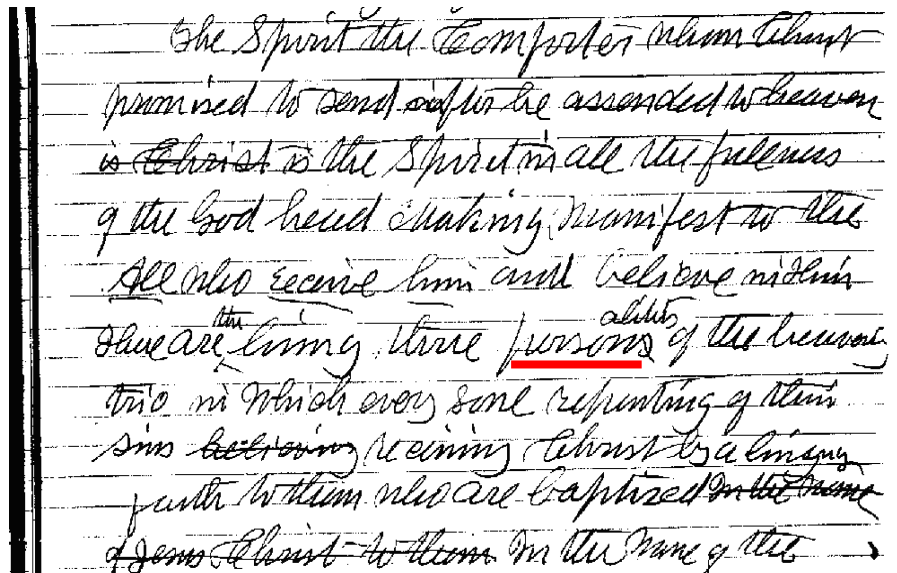 The Spirit the Comforter whom Christ
promised to send after he assended to heaven
is Christ is the Spirit in all the fulness
of the God head making manifest to the
All who receive him and believe in Him
There are the living three personalities of the heavenly
trio in which every soul repenting of their
sins believing receiving Christ by a living
faith to them who are baptized in the name
of Jesus Christ to them In the Name of the